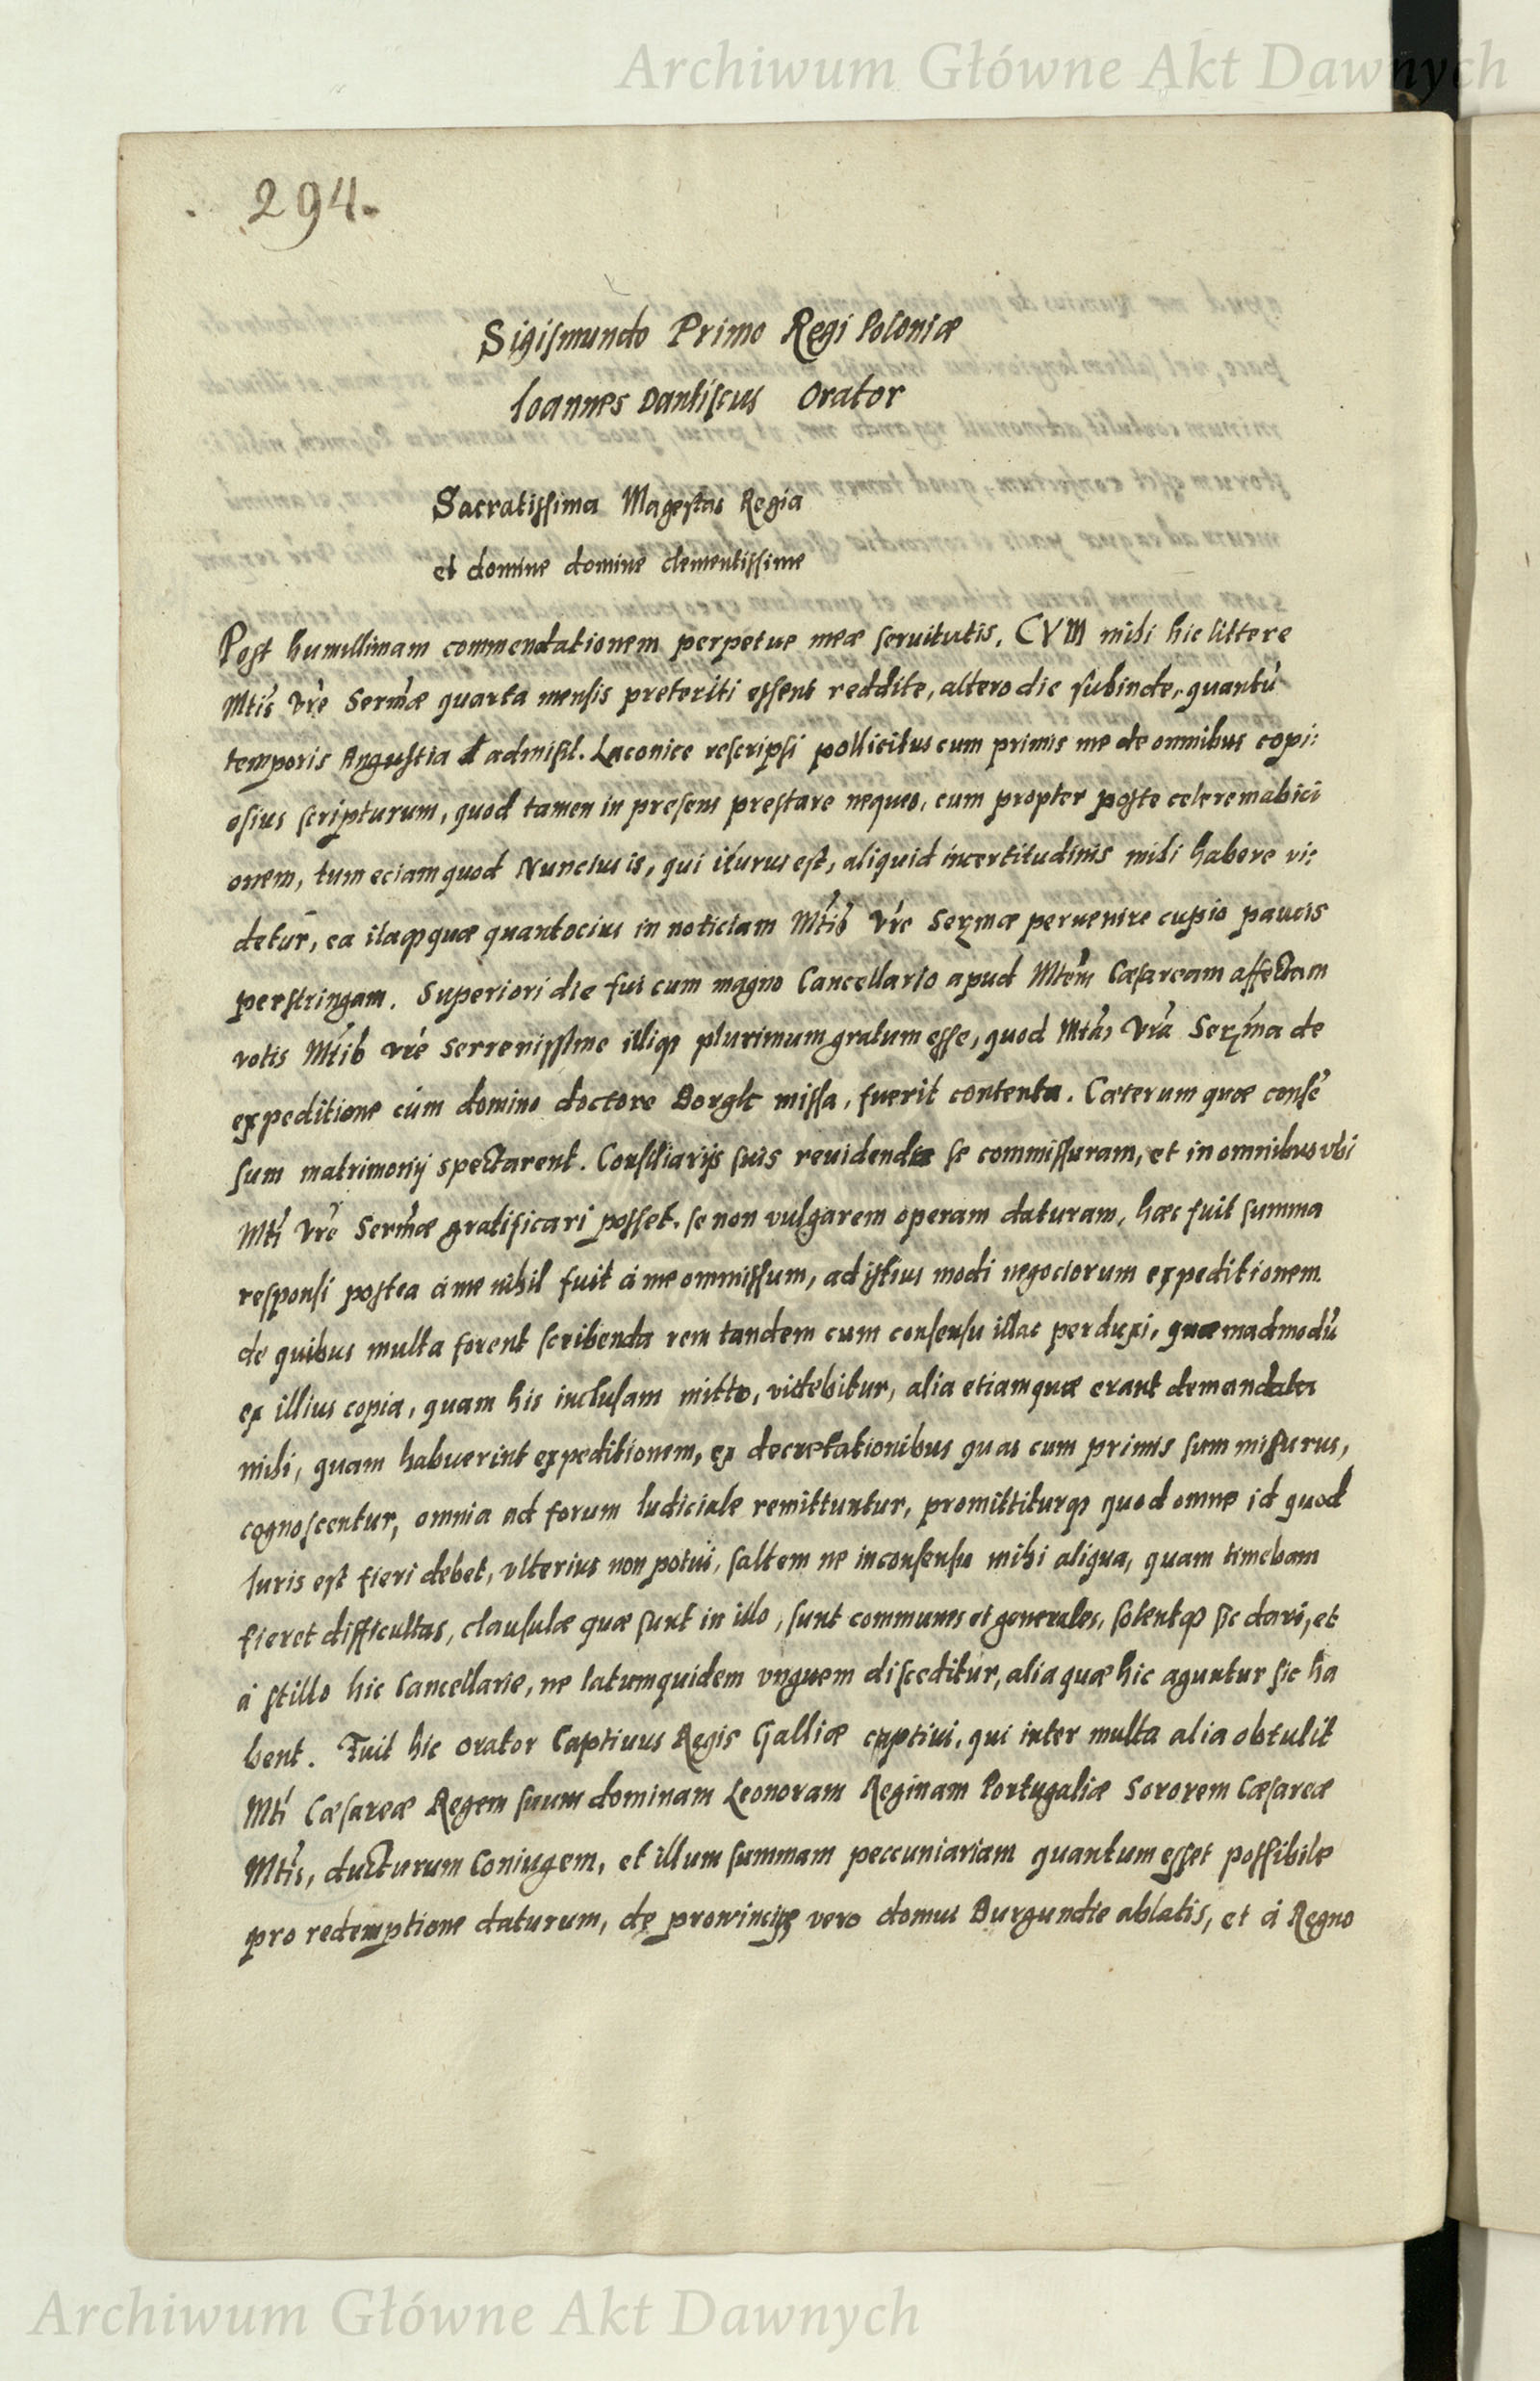 Archiwum Główne Akt Dawnych
294.
Sigismundo Primo Regi Poloniæ
Ioannes Dantiscus Orator
Sacratissima Magestas Regia
et domine domine clementissime
Post humillimam commendationem perpetue meæ servitutis. CVM mihi hic littere
Mtis Vre Sermæ quarta mensis preteriti essent reddite, altero die subinde, quantū
temporis Angustia admisit. Laconice rescripsi pollicitus cum primis me de omnibus copi:
osius scripturum, quod tamen in presens prestare nequeo, cum propter poste celerem abici
onem, tum eciam quod Nuncius is, qui iturus est, aliquid incertitudinis mihi habere vi:
detur, ea itaq quæ quantocius in noticiam Mtis Vre Sermæ pervenire cupio paucis
perstringam. Superiori die fui cum magno Cancellario apud Mtem Cæsaream affectam
votis Mtis vre Serrenissime illiq plurimum gratum esse, quod Mtas Vra Serma de
expeditione cum domino doctore Borgk missa, fuerit contenta. Cæterum quæ consē
sum matrimonij spectarent. Consiliarijs suis revidenda se commissuram, et in omnibus vbi
Mti Vre Sermæ gratificari posset. se non vulgarem operam daturam, hæc fuit summa
responsi postea à me nihil fuit à me ommissum, ad istius modi negociorum expeditionem
de quibus multa forent scribenda rem tandem cum consensu illac perduxi, quæmadmodū
ex illius copia, quam his inclusam mitto, videbitur, alia etiam quæ erant demandata
mihi, quam habuerint expeditionem, ex decretationibus quas cum primis sum missurus,
cognoscentur, omnia ad forum Iudiciale remittuntur, promittiturq quod omne id quod
Iuris est fieri debet, vlterius non potui, saltem ne in consensu mihi aliqua, quam timebam
fieret difficultas, clausulæ quæ sunt in illo, sunt communes et generales, solentq sic dari, et
à stillo hic Cancellarie, ne latum quidem vnguem disceditur, alia quæ hic aguntur sic ha
bent. Fuit hic orator Captivus Regis Galliæ captivi, qui inter multa alia obtulit
Mti Cæsareæ Regem suum dominam Leonoram Reginam Portugaliæ Sororem Cæsareæ
Mtis, ducturum Coniugem, et illum summam peccuniariam quantum esset possibile
pro redemptione daturum, de provincijs vero domus Burgundie ablatis, et à Regno
Archiwum Główne Akt Dawnych